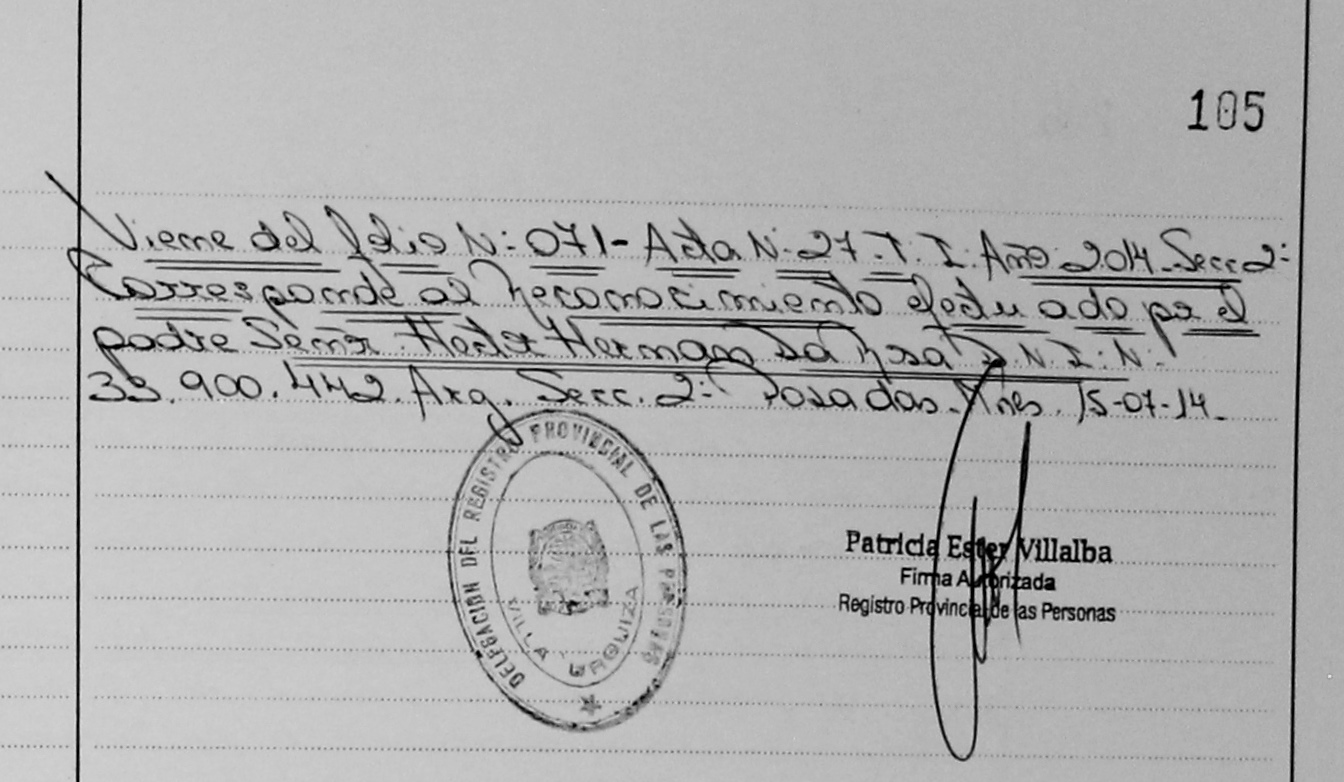 105
Viene del folio N: 071- Acta N. 27. T. I. Año 2014. Secc 2:
Corresponde al Reconocimiento efectuado por el
padre Señor Hector Hernan Da Rosa D.N.I:N.
33.900.442. Arg. Secc. 2: Posadas. Mnes. 15-07-14_
DELEGACION DEL REGISTRO PROVINCIAL DE LAS PERSONAS
VILLA URQUIZA
Patricia Ester Villalba
Firma Autorizada
Registro Provincial de las Personas